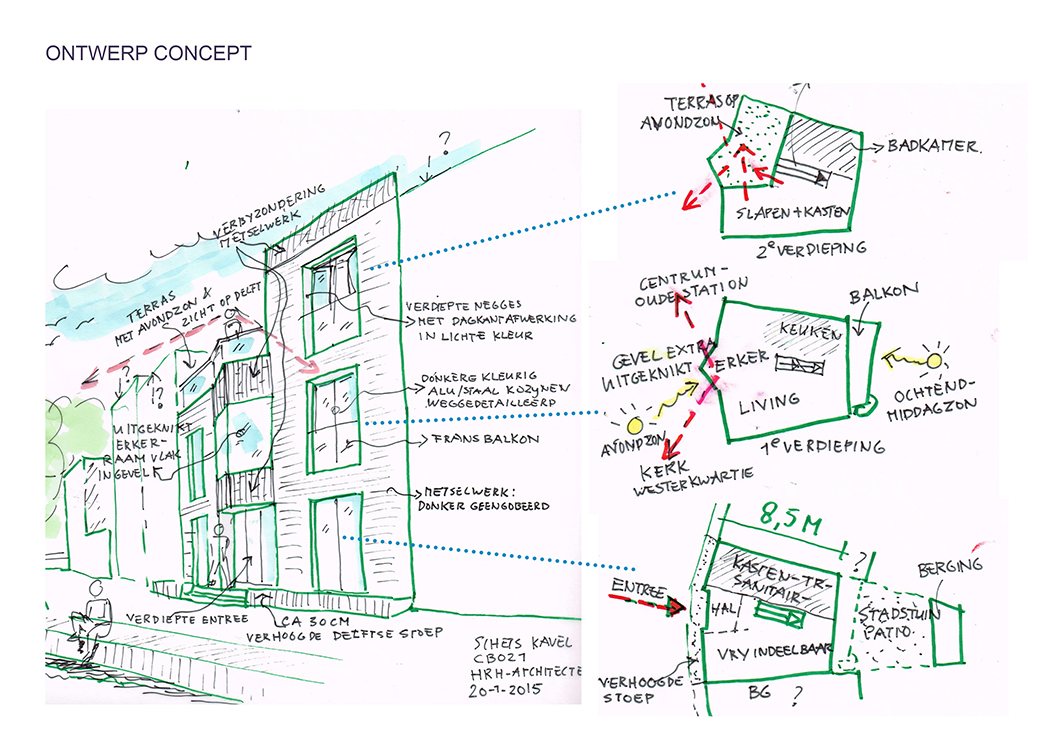 ONTWERP CONCEPT
?
VERBYZONDERING
METSELWERK
TERRAS
MET AVONDZON &
ZICHT OP DELFT
VERDIEPTE NEGGES
MET DAGKANTAFWERKING
IN LICHTE KLEUR
DONKERG KLEURIG
ALU/STAAL KOZYNEN
WEGGEDETAILLEERD
FRANS BALKON
METSELWERK:
DONKER GEENGOBEERD
?
??
UITGEKNIKT
ERKER-
RAAM VLAK
IN GEVEL
VERDIEPTE ENTREE
CA 30CM
VERHOOGDE DELFTSE STOEP
SCHETS KAVEL
CB027
HRH-ARCHITECTE
20-1-2015
TERRAS OP
AVONDZON
BADKAMER.
SLAPEN + KASTEN
2e VERDIEPING
CENTRUM-
OUDE STATION
BALKON
KEUKEN
GEVEL EXTRA
UITGEKNIKT
ERKER
LIVING
OCHTEND-
MIDDAGZON
AVONDZON
1e VERDIEPING
KERK
WESTERKWARTIE
8,5 M
?
BERGING
KASTEN-TR-
SANITAIR-
ENTREE
HAL
STADSTUIN
PATIO.
VRY INDEELBAAR
VERHOOGDE
STOEP
BG ?